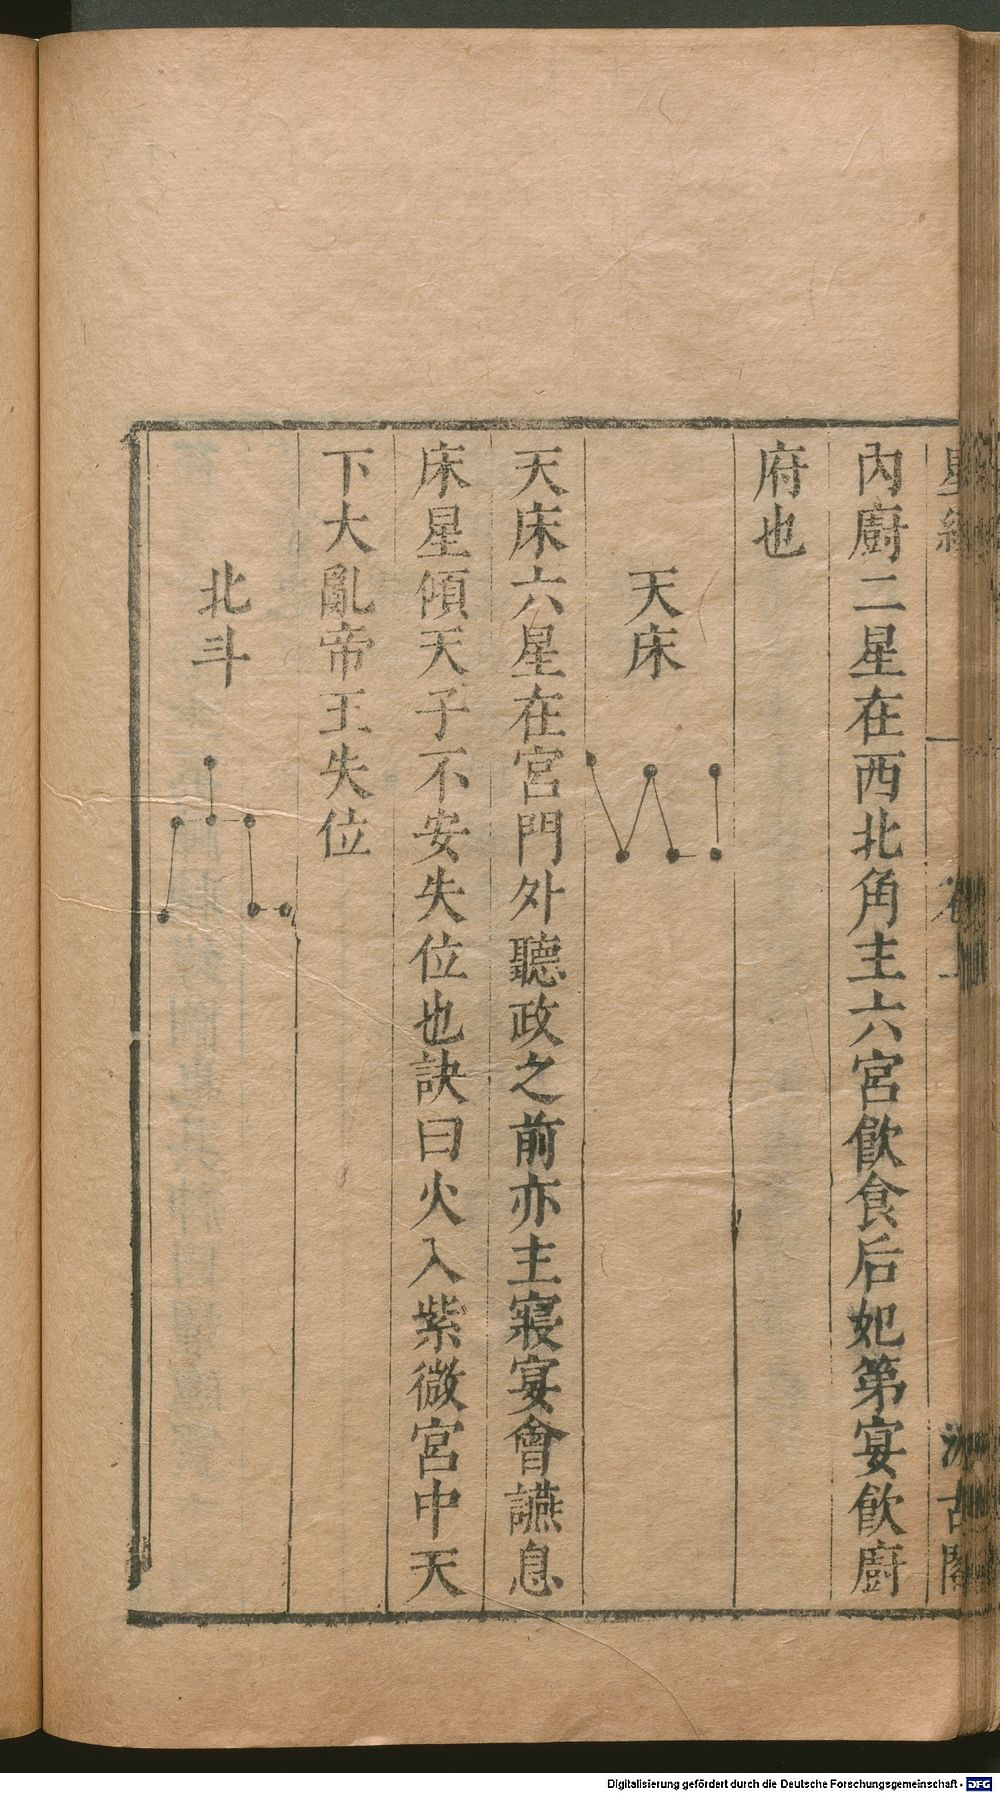 星經
卷上
汲古閣
內廚二星在西北角主六宮飮食后妃第宴飮廚
府也
天床
天床六星在宮門外聽政之前亦主寢宴會讌息
床星傾天子不安失位也訣曰火入紫微宮中天
下大亂帝王失位
北斗
Digitalisierung gefördert durch die Deutsche Forschungsgemeinschaft - DFG